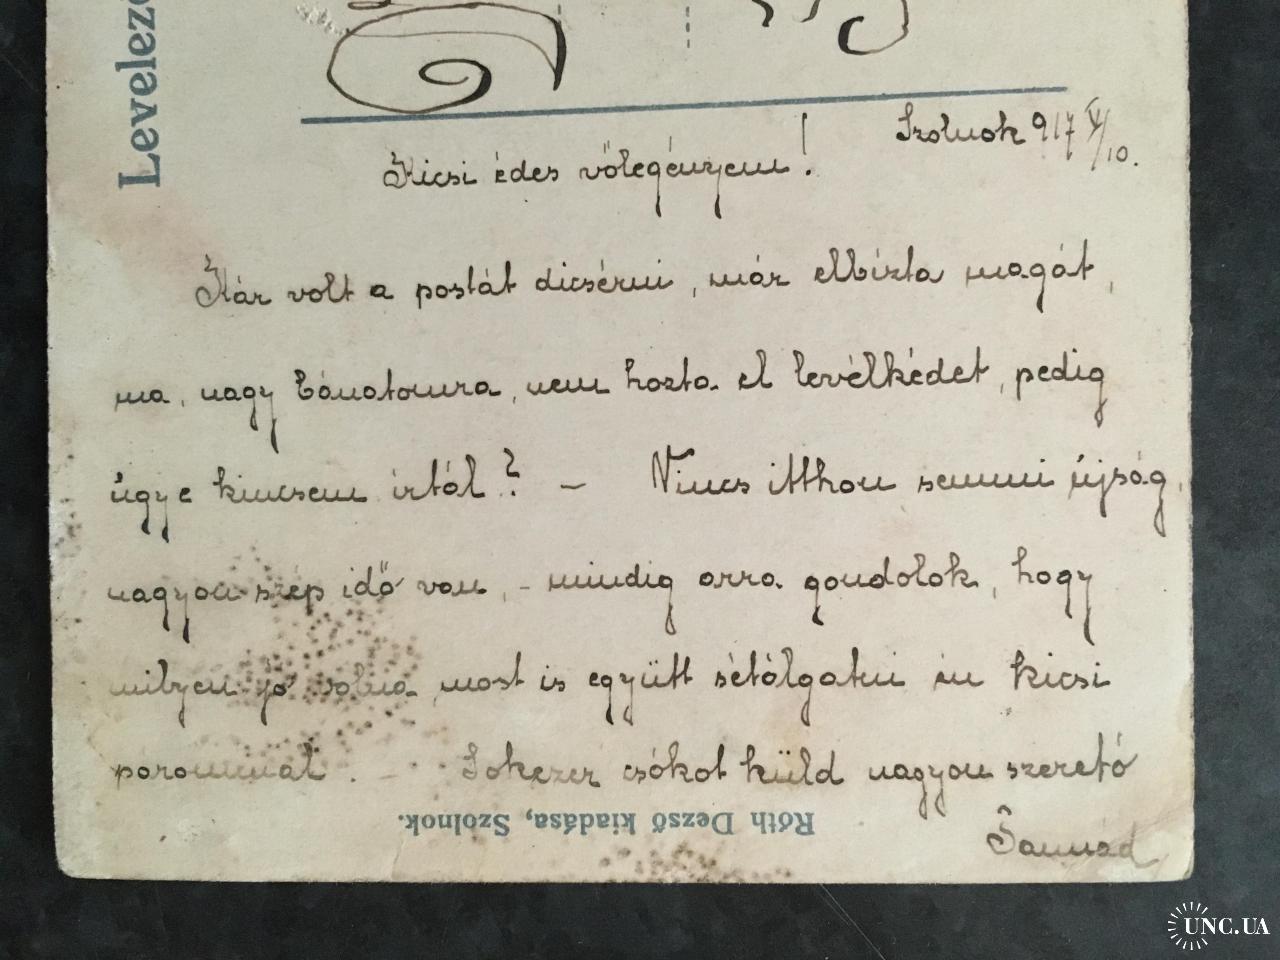 Levelező
Szolnok 917 V/10.
Kicsi édes vőlegényem!
Kár volt a postát dicsérni, már elbízta magát,
ma, nagy bánatomra, nem hozta el levélkédet, pedig
ugye kincsem írtál? – Nincs itthon semmi újság,
nagyon szép idő van, – mindig arra gondolok, hogy
milyen jó volna most is együtt sétálgatni én kicsi
párommal. – Sokezer csókot küld nagyon szerető
Róth Dezső kiadása, Szolnok.
UNC.UA